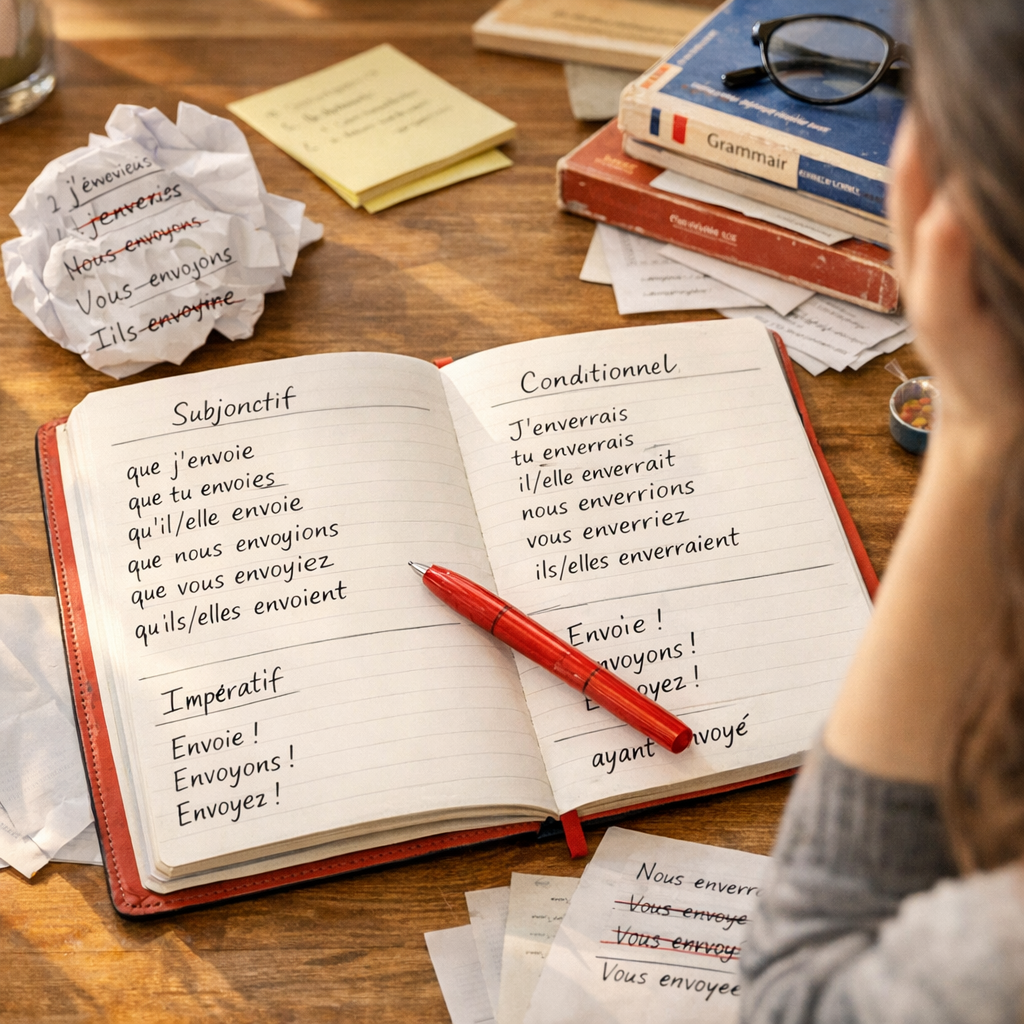 j'éwevieus
jenveries
Nous envoyons
Vous envojons
Iils envoyine
Grammair
Subjonctif
que j'envoie
que tu envoies
qu'il/elle envoie
que nous envoyions
que vous envoyiez
quils/elles envoient
Impératif
Envoie !
Envoyons !
Envoyez !
Conditionnel
J'enverrais
tu enverrais
il/elle enverrait
nous enverrions
vous enverriez
ils/elles enverraient
Envoie !
nvoyons !
E oyez !
ayant nvoyé
Nous enverr
Vous envoye
Vous envvoy
Vous envoyee